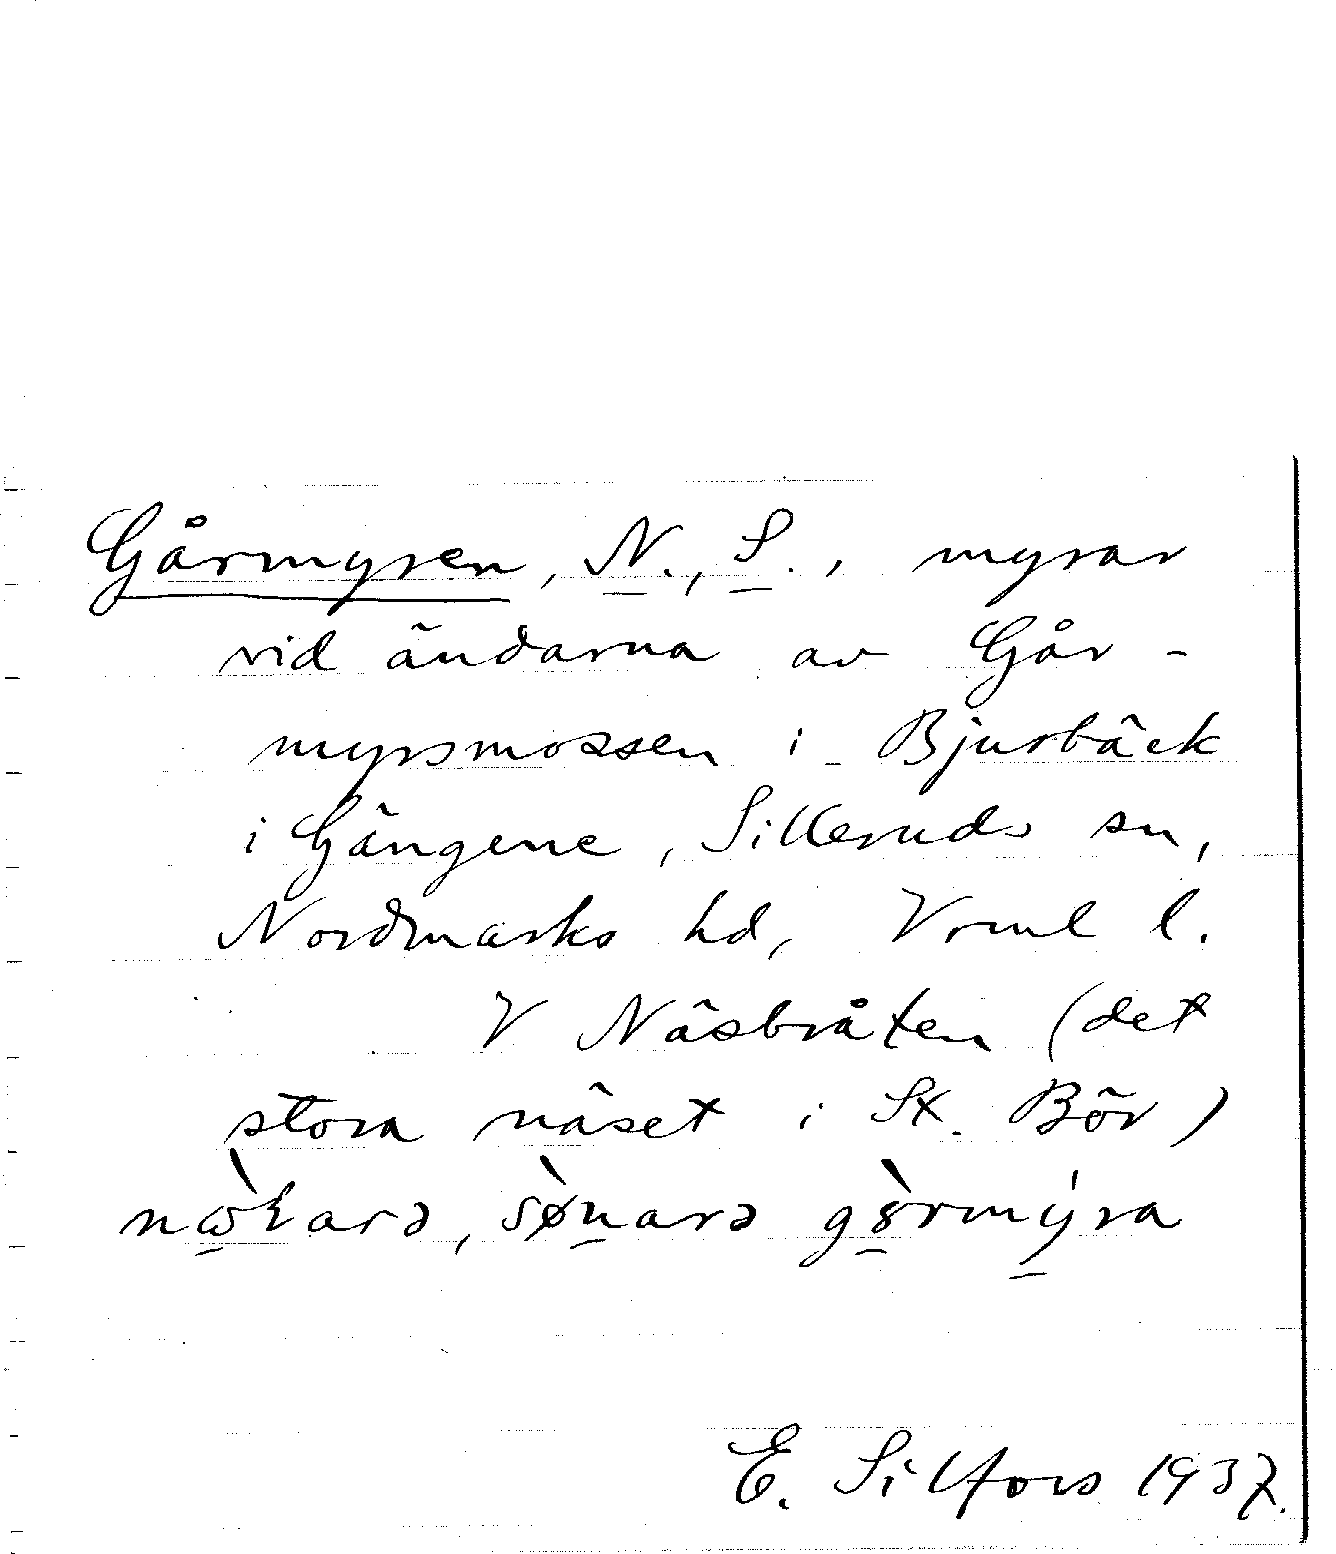 Gårmyren, N., S., myrar
vid ändarna av Går-
myrsmossen i Bjurbäck
i Gängene, Silleruds sn,
Nordmarks hd, Vrml l.
V Näsbråten (det
stora näset i St. Bör)
nὼkarə, sø̀narə gȣ̀rmýra
E. Silfors 1937.